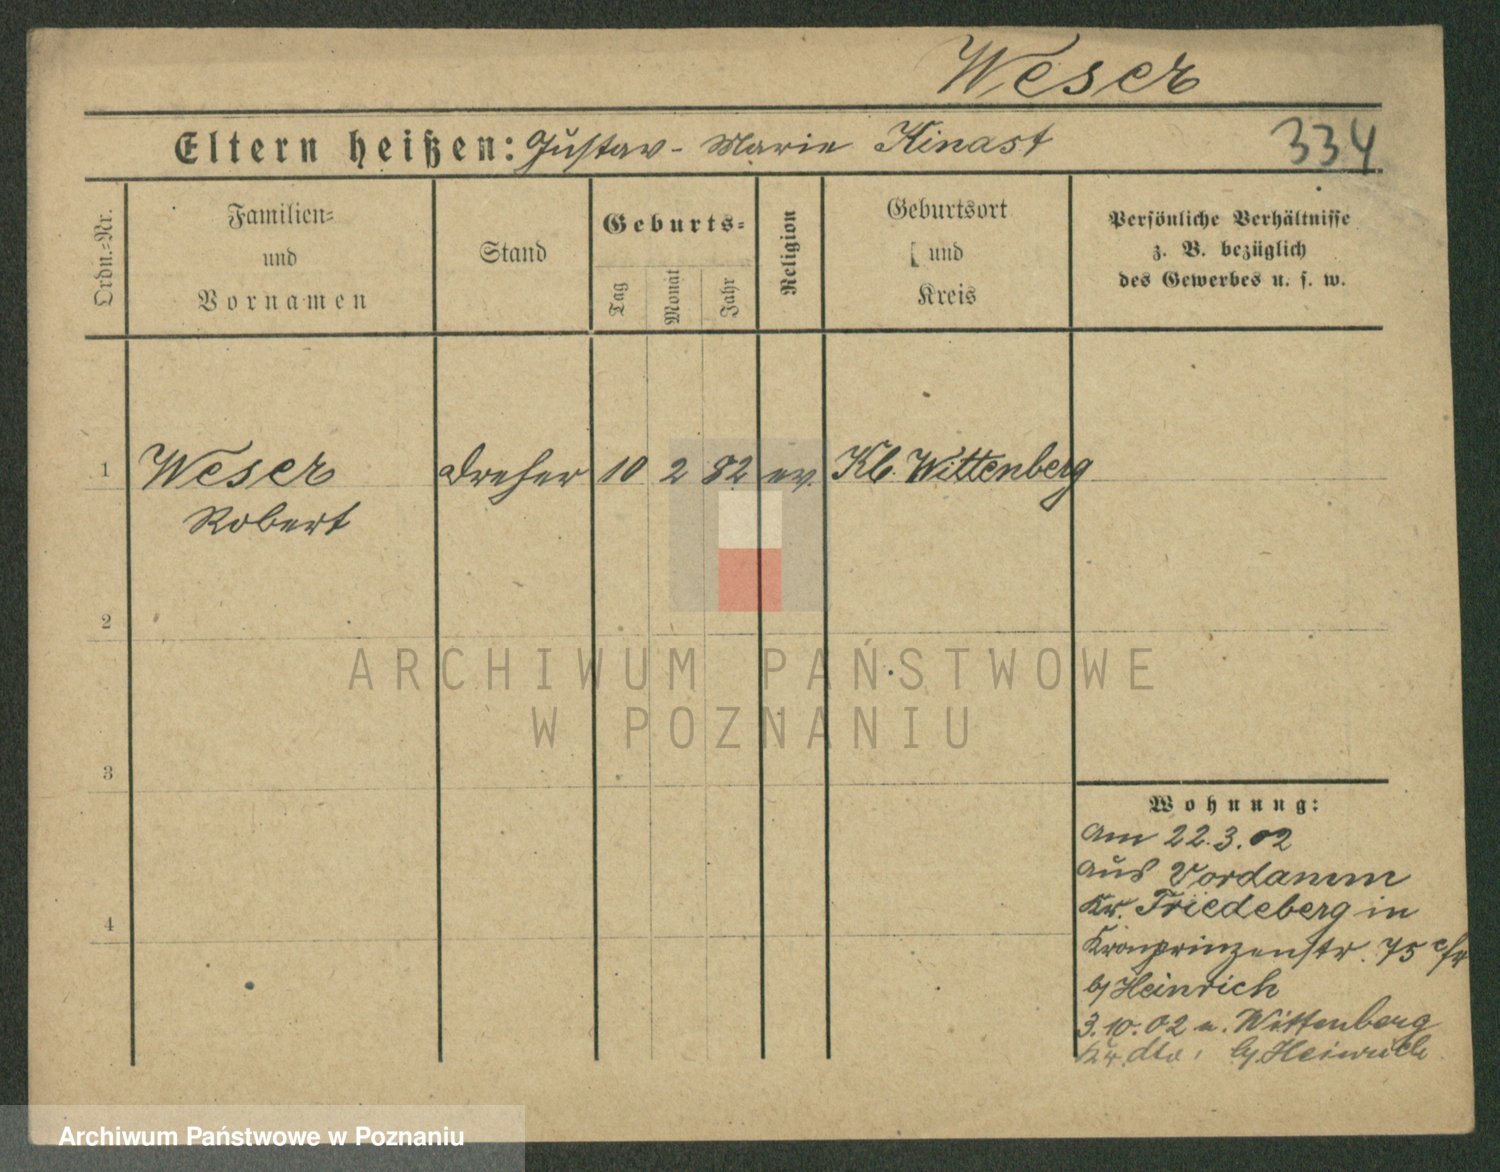 Weser
Eltern heißen: Gustav - Marie Kinast
334
Ordn.=Nr.
Familien=
und
Vornamen
Stand
Geburts=
Tag
Monat
Jahr
Religion
Geburtsort
und
Kreis
Persönliche Verhältnisse
z. B. bezüglich
des Gewerbes u. s. w.
1
Weser
Robert
Dreher
10
2
82
ev.
Kl. Wittenberg
2
3
4
Wohnung:
Am 22.3.02
aus Vordamm
Kr. Friedeberg in
Kronprinzenstr. 75
b/ Heinrich
3.10.02 n. Wittenberg
Kr. dto. b/ Heinrich
ARCHIWUM PAŃSTWOWE
W POZNANIU
Archiwum Państwowe w Poznaniu